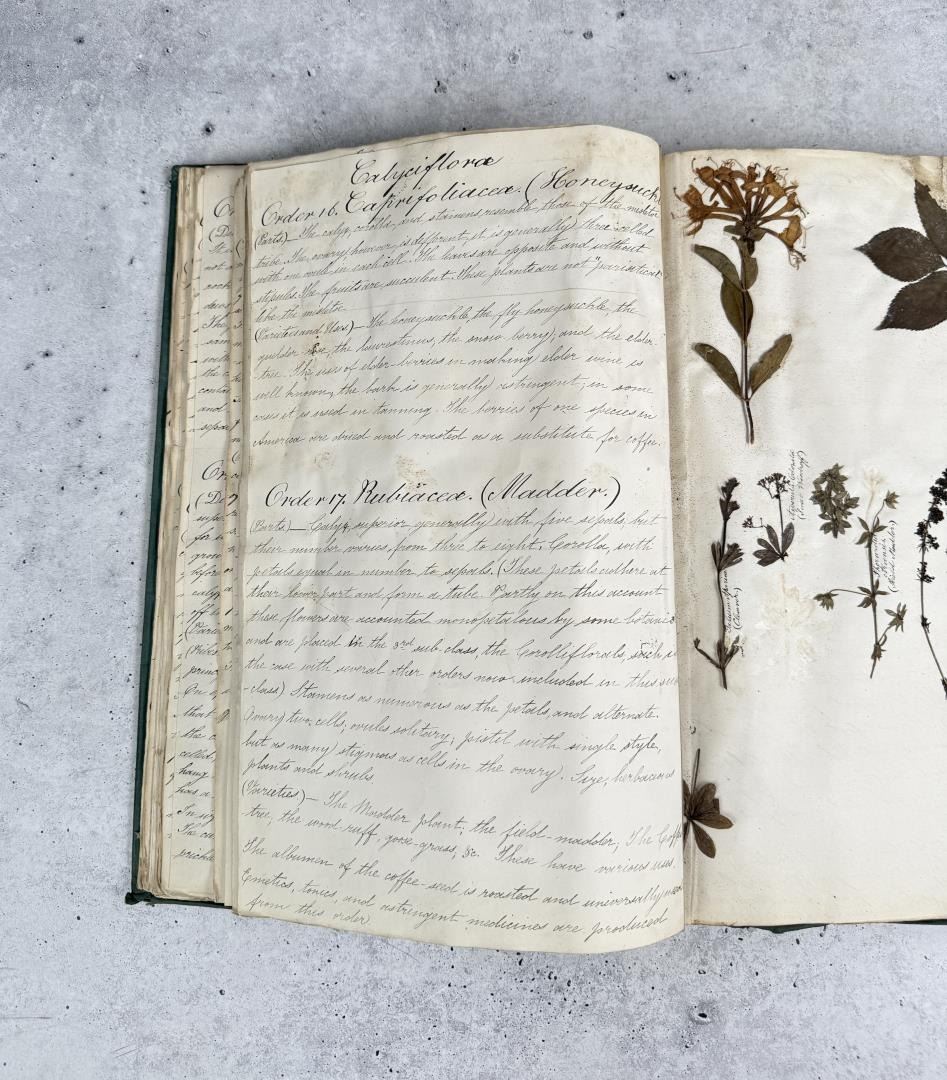 Calyciflora
Order 16. Caprifoliacea. (Honeysuckl
(Parts)— The calyx, corolla, and stamens resemble those of the misletoe
tribe. The ovary, however, is different, it is generally three-celled
with one ovule in each cell. The leaves are opposite and without
stipules. The fruits are succulent. These plants are not "parasitical"
like the misletoe.
(Varieties and Uses.)— The honeysuckle, the fly honeysuckle, the
guelder-rose, the laurestinus, the snow berry, and the elder-
tree. The use of elder-berries in making elder wine is
well known, the bark is generally astringent; in some
cases it is used in tanning. The berries of one species in
America are dried and roasted as a substitute for coffee.
Order 17. Rubiacea. (Madder.)
(Parts.)— Calyx, superior generally with five sepals, but
their number varies from three to eight. Corolla, with
petals equal in number to sepals. (These petals adhere at
their lower part and form a tube. Partly on this account
these flowers are accounted monopetalous by some botanis
and are placed in the 3rd sub-class, the Corolliflorals, such is
the case with several other orders now included in this su
-class) Stamens as numerous as the petals, and alternate.
Ovary two, cells; ovules solitary; pistil with single style,
but as many stigmas as cells in the ovary. Size, herbaceous
plants and shrubs
(Varieties)— The Madder plant, the field-madder, The Coff
tree, the wood-ruff, goose-grass, &c. These have various uses.
The albumen of the coffee-seed is roasted and universally
Emetics, tonics, and astringent medicines are produced
from this order
(Cleavers)
(Sweet Woodruff)
(Field Madder)